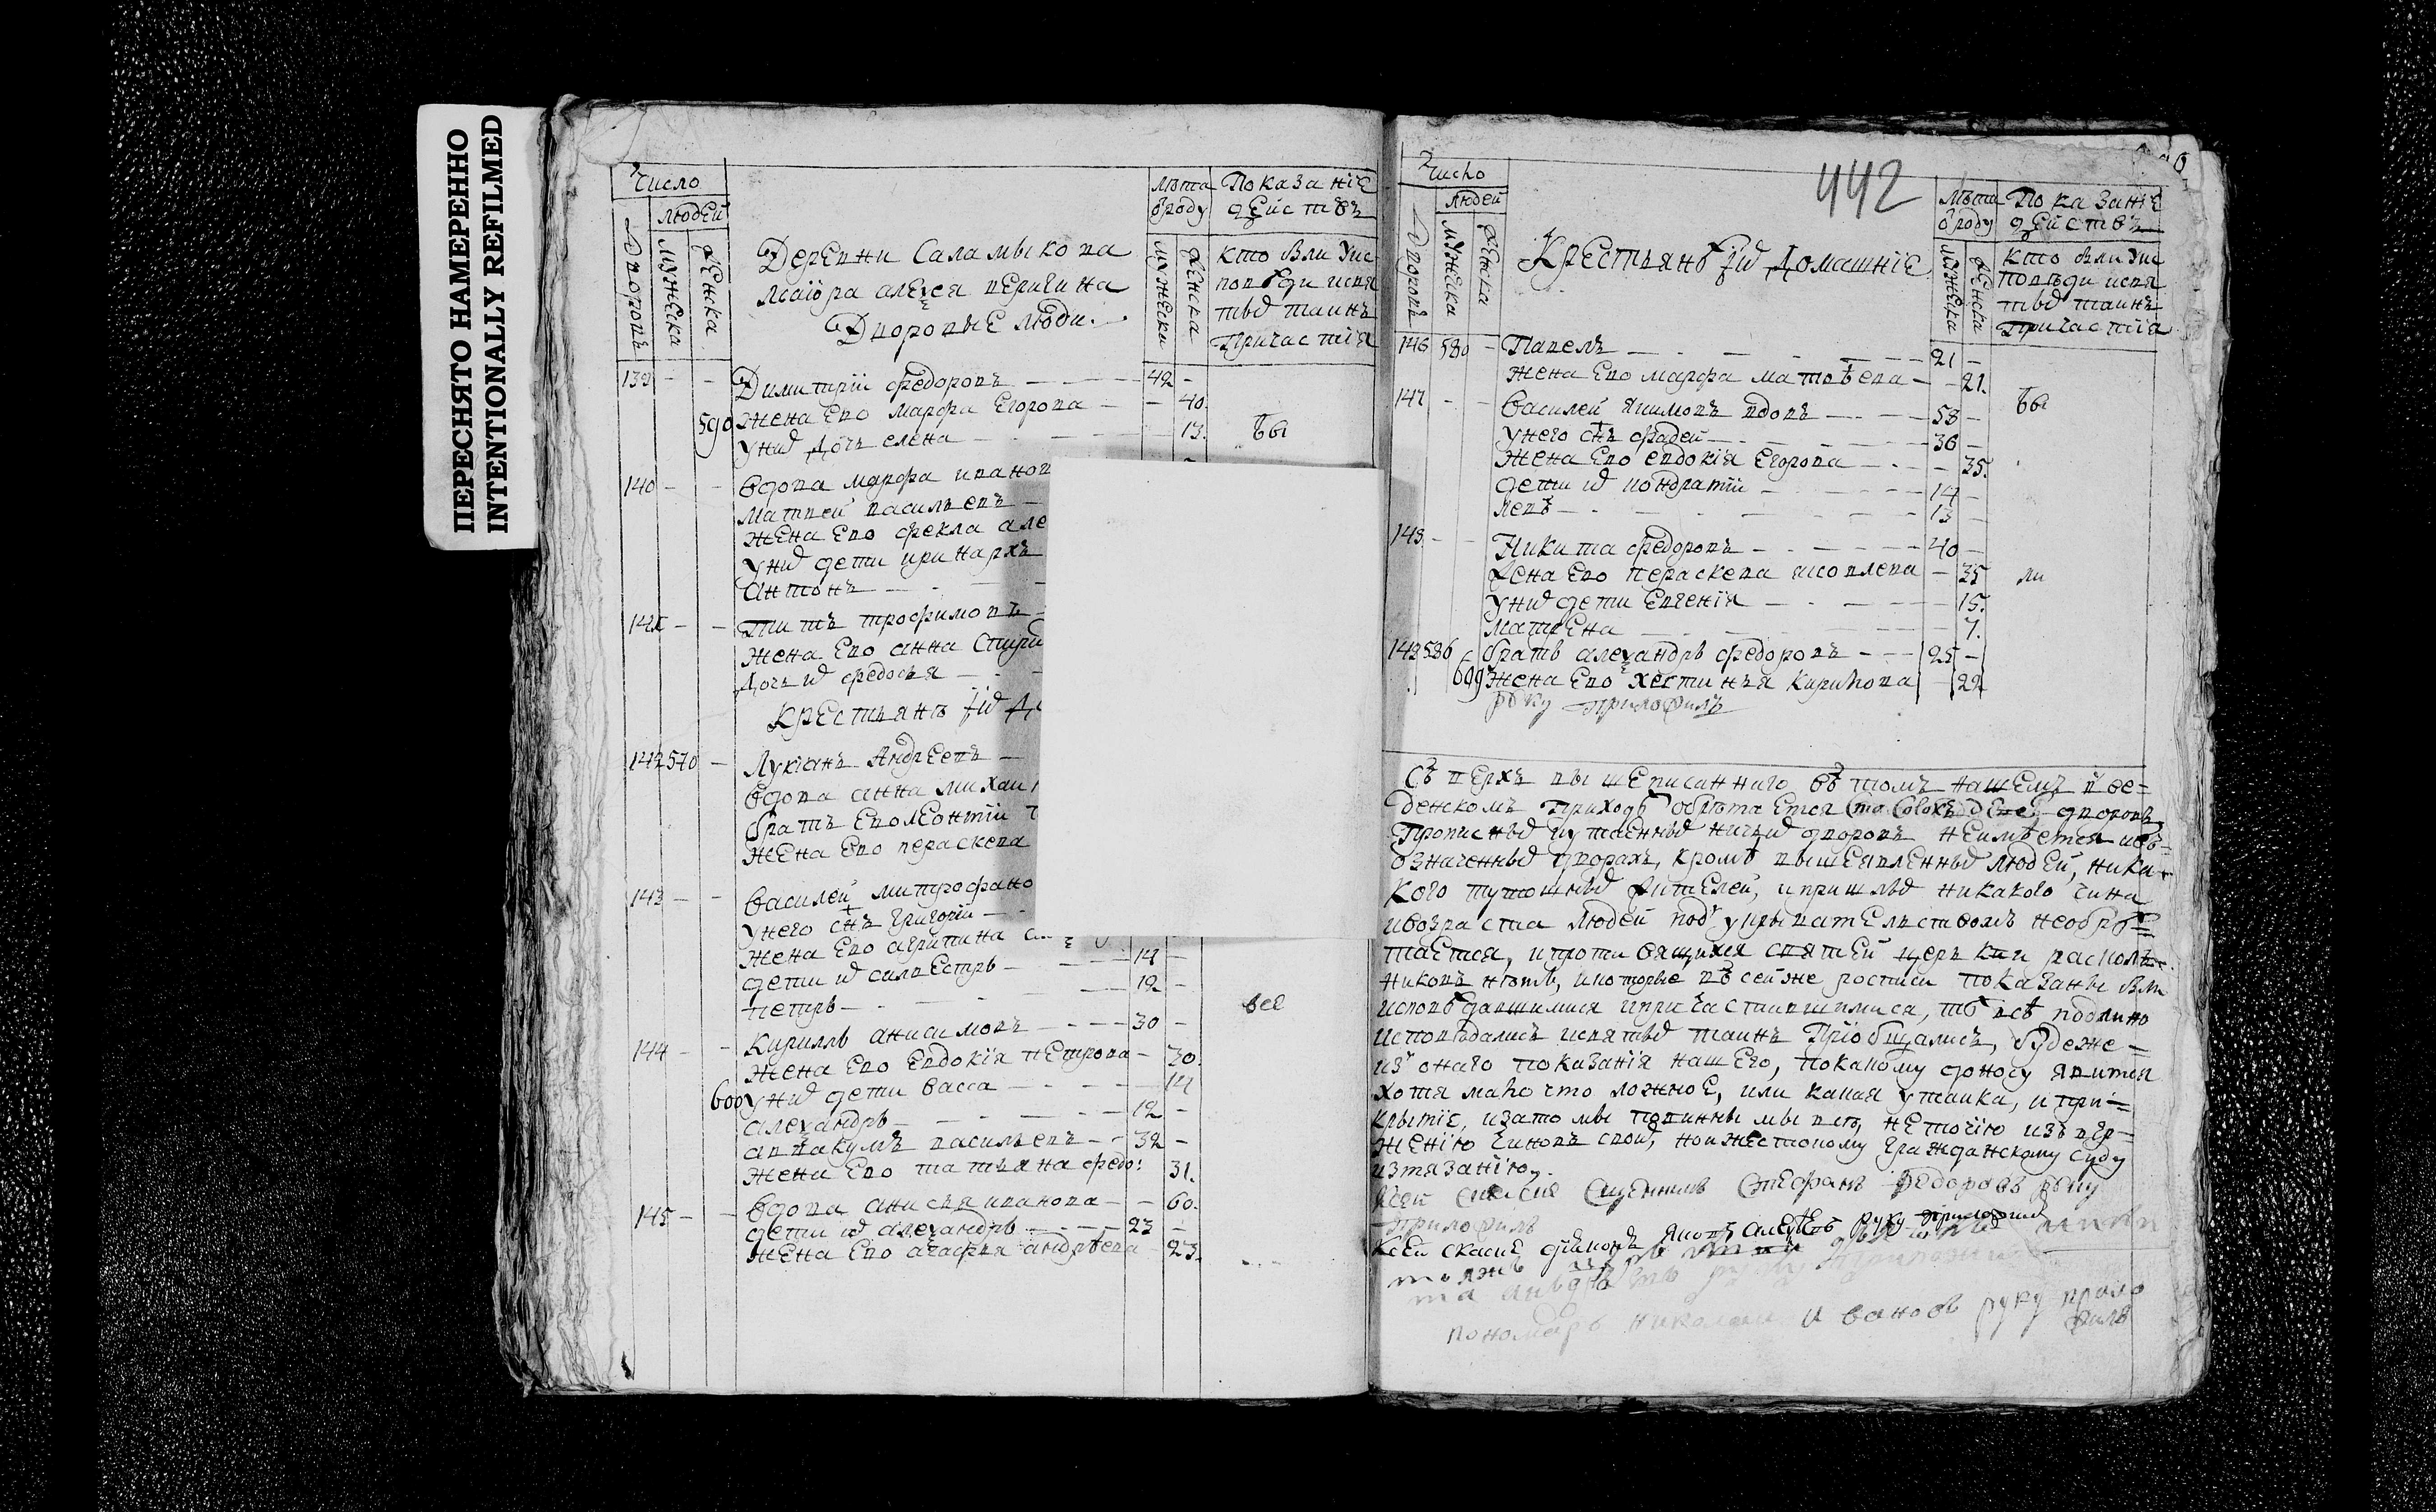 ПЕРЕСНЯТО НАМЕРЕННО
INTENTIONALLY REFILMED
Число
людей
дворовъ
мужеска
женска
Деревни Саламыкова
маіора алеѯея веригина
Дворовые люди
лѣта ѿ роду
мужеска
женска
Показаніе
дѣйствъ
кто были у ис
поведи и свя
тыхъ таинъ
Причастія
139 - - Димитріи федоровъ 42 -
590 жена Его Марфа Егорова - 40
у нихъ Дочь елена 13 бы
140 - - вдова марфа иванов
матвей васильевъ
жена Его фекла але
у нихъ дети иринархъ
антонъ
141 - - Титъ трофимовъ
жена Его анна Спири
Дочь ихъ федосья
Крестьянъ
142 570 - Лукіанъ Андреевъ
вдова анна михаи
братъ Его леонтіи
жена Его параскева
143 - - василей митрофано
у него снъ григоріи
жена Его агрипина
дети ихъ силвестръ 14 -
петръ 12 - все
144 - - Кириллъ анисимовъ 30 -
жена Его Евдокія петрова - 30
600 у нихъ дети васса 14
алеѯандръ 12 -
аввакумъ васильевъ 32 -
жена Его татьяна федо: 31
145 - - вдова анисья иванова - 60
дети ихъ алеѯандръ 23 -
жена Его агафья андрѣева 23
442
Число
людей
дворовъ
мужеска
женска
Крестьянѣ и ихъ Домашніе
лѣта ѿ роду
мужеска
женска
Показаніе
дѣйствъ
кто были у ис
поведи и свя
тыхъ таинъ
Причастія
146 580 - Павелъ 21 -
жена Его марфа матвѣева - 21
147 - - василей якимовъ вдовъ 58 - бы
у него снъ фадей 36 -
жена Его евдокія Егорова - 35
дети ихъ кондратіи 14 -
левъ 13 -
148 - - Никита федоровъ 40 -
жена Его пераскева яковлева - 35 ли
у нихъ дети Евгенія 15
матрена 7
149 586 братъ алеѯандръ федоровъ 25 -
609 жена Его хестинья Кирилова 22
руку приложилъ
Съ верхъ вышеписанного въ томъ нашемъ введе=
денскомъ приходѣ обрѣтается сто сорокъ дворовъ
Прописныхъ и утаенныхъ ничьихъ дворовъ неимѣется и въ
означенныхъ дворахъ, кромѣ вышеявленныхъ людей, ника
кого тутошныхъ жителей, и пришлыхъ никакого чина
и возраста людей под укрывателствомъ необрѣ=
таетса, и противящихся святей церькви расколь
никовъ нѣтъ, и которые въ сей же росписи показаны бы
исповѣдавшимися и причастившимися, тѣ всѣ подлино
исповѣдались и святыхъ таинъ Пріобщались, буде же=
из онаго показанія нашего, по какому доносу явится
хотя мало что ложное, или какая утайка, и при=
крытіе, и за то мы повинны мы въ, не точію извер=
женію чиновъ своихъ, но и жестокому гражданскому суду
изтязанію.
Стефанъ федоровъ руку
приложилъ
К сей скаске руку приложилъ
пономарь николаи ивановъ руку прило
жилъ